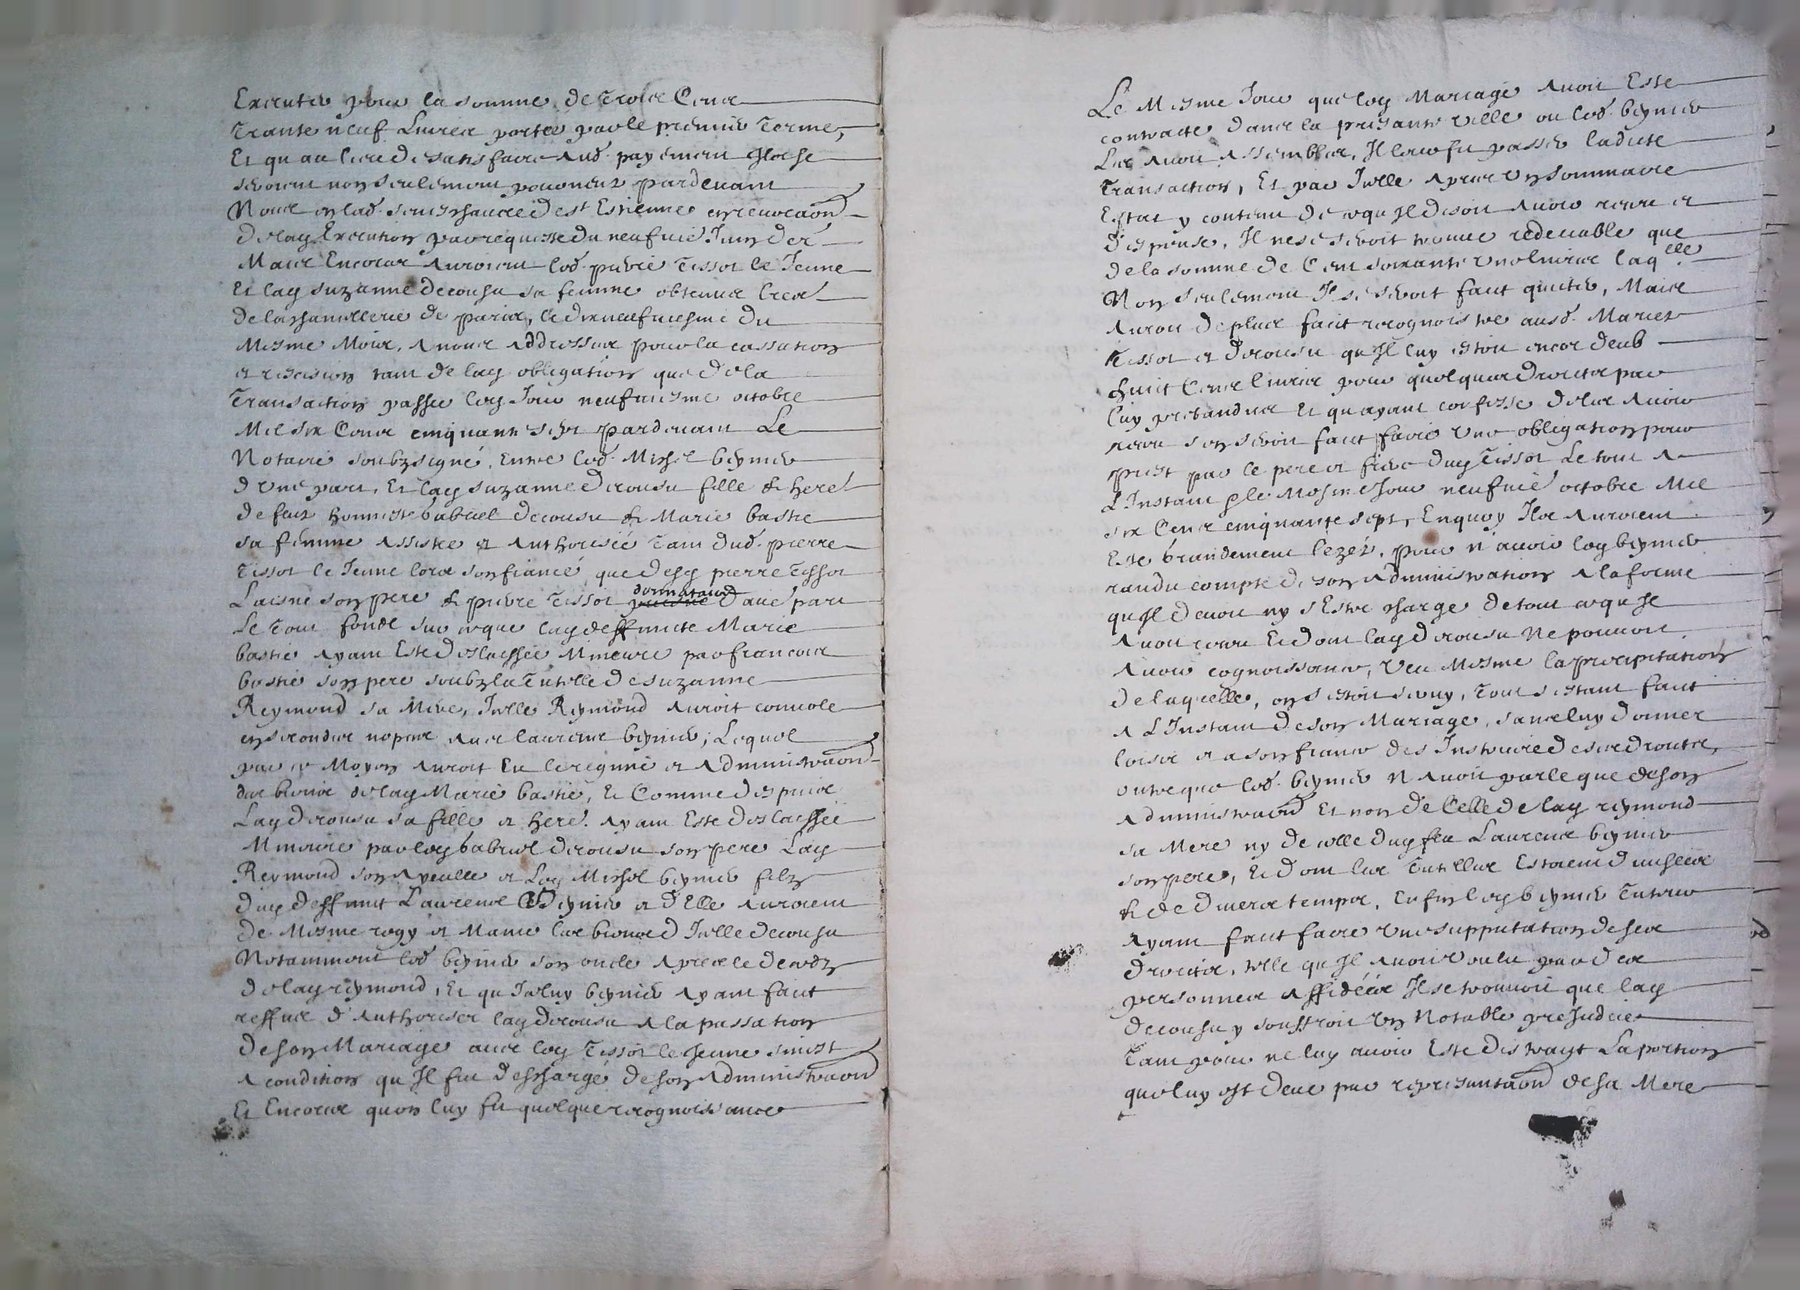 Executer pour la somme de trois Cens
trante neuf Livres portée par le premier terme,
Et qu au lieu de satisfaire aud. payement Ilz se
seroient non seulement pourveuz pardevant
Nous en lad. seneschaucée de st Estienne en revocaon
de lad. Execution par requeste du neufvie. Juin der
Mais Encores auroient led. pierre Tissot le Jeune
Et lad. suzanne decousu sa femme obtenus lres
de la chancellerie de paris, le dixneufviesme du
Mesme Mois, A nous Addressées pour la cassation
et rescision tant de lad. obligation que de la
Transaction passée led. Jour neufviesme octobre
Mil six Cens cinquante sept pardevant Le
Notaire soubzsigné, Entre led. Michel beynier
d une part, Et lad. suzanne decousu fille & here.
de feuz honneste gabriel decousu & Marie bastie
sa femme Assistée et Authorisée tant dud. pierre
Tissot le Jeune lors son fiancé, que desd. pierre Tissot
Laisné son pere & pierre Tissot donnataire d'aue. part
Le Tout fondé sur ce que lad. deffuncte Marie
bastie Ayant Esté delaissée Mineure par francois
bastie son pere soubz la Tutelle de suzanne
Reymond sa Mere, Icelle Reymond Auroit convolé
en secondes nopces Avec laurens beynier, Lequel
par ce Moyen Auroit Eu le regime et Administraon
des biens de lad. Marie bastie, Et Comme despuis
Lad. decousu sa fille et here. Ayant Esté delaissée
Mineure par led. gabriel decousu son pere Lad.
Reymond son Ayeulle et Led. Michel beynier filz
dud. deffunct Laurens beynier et d'Elle Auroient
de Mesme regy et Manié les biens d Icelle decousu
Notamment led. beynier son oncle Apres le decedz
de lad. reymond, Et qu Iceluy beynier Ayant faict
reffus d'Authoriser lad. decousu A la passation
de son Mariage avec led. Tissot le Jeune sinost
A condition qu Il fut deschargé de son Administraon
Et Encores qu on luy fit quelque recognoissance
Le Mesme Jour que led. Mariage Avoit Esté
contracté dans la presante ville ou led. beynier
Les Avoit Assemblez, Il leur fit passer ladicte
Transaction, Et par Icelle Apres un sommaire
Estat y contenu de ce qu Il disoit Avoir receu et
despensé, Il ne se seroit trouvé redevable que
de la somme de Cent soixante une livres laqlle
Non seulement Il se seroit faict quitter, Mais
Auroit de plus faict recognoistre ausd. Mariez
Tissot et decousu qu Il luy estoit encor deub
huict Cens livres pour quelques droictz par
luy pretandus Et qu ayant confessé de les Avoir
receu s en seroit faict faire une obligation pour
prest par le pere et frere dud. Tissot Le tout A
L Instant & le Mesme Jour neufvie. octobre Mil
six Cens cinquante sept, En quoy Ilz Auroient
Esté grandement lezéz, pour n'avoir led. beynier
randu compte de son Administration A la forme
qu Il devoit ny s Estre chargé de tout ce qu Il
Avoit receu Et dont lad. decousu Ne pouvoit
Avoir cognoissance, veu Mesme la precipitation
de laquelle, on s estoit servy, Tout s estant faict
A L Instant de son Mariage, sans luy donner
loisir et a son fiancé des Instruire de ses droictz,
outre que led. beynier N Avoit parlé que de son
Administraon Et non de Celle de lad. reymond
sa Mere ny de celle dud. feu Laurens beynier
son pere, Et dont les Tutelles Estoient
& de divers temps, Enfin led. beynier Tuteur
Ayant faict faire une supputation de ses
droictz, telle qu Il Avoit voulu par des
personnes Affidéés Il se trouvoit que lad.
decousu y souffroit un Notable prejudice
Tant pour ne luy avoir Esté distrayt La portion
que luy est deue par representaon de sa Mere